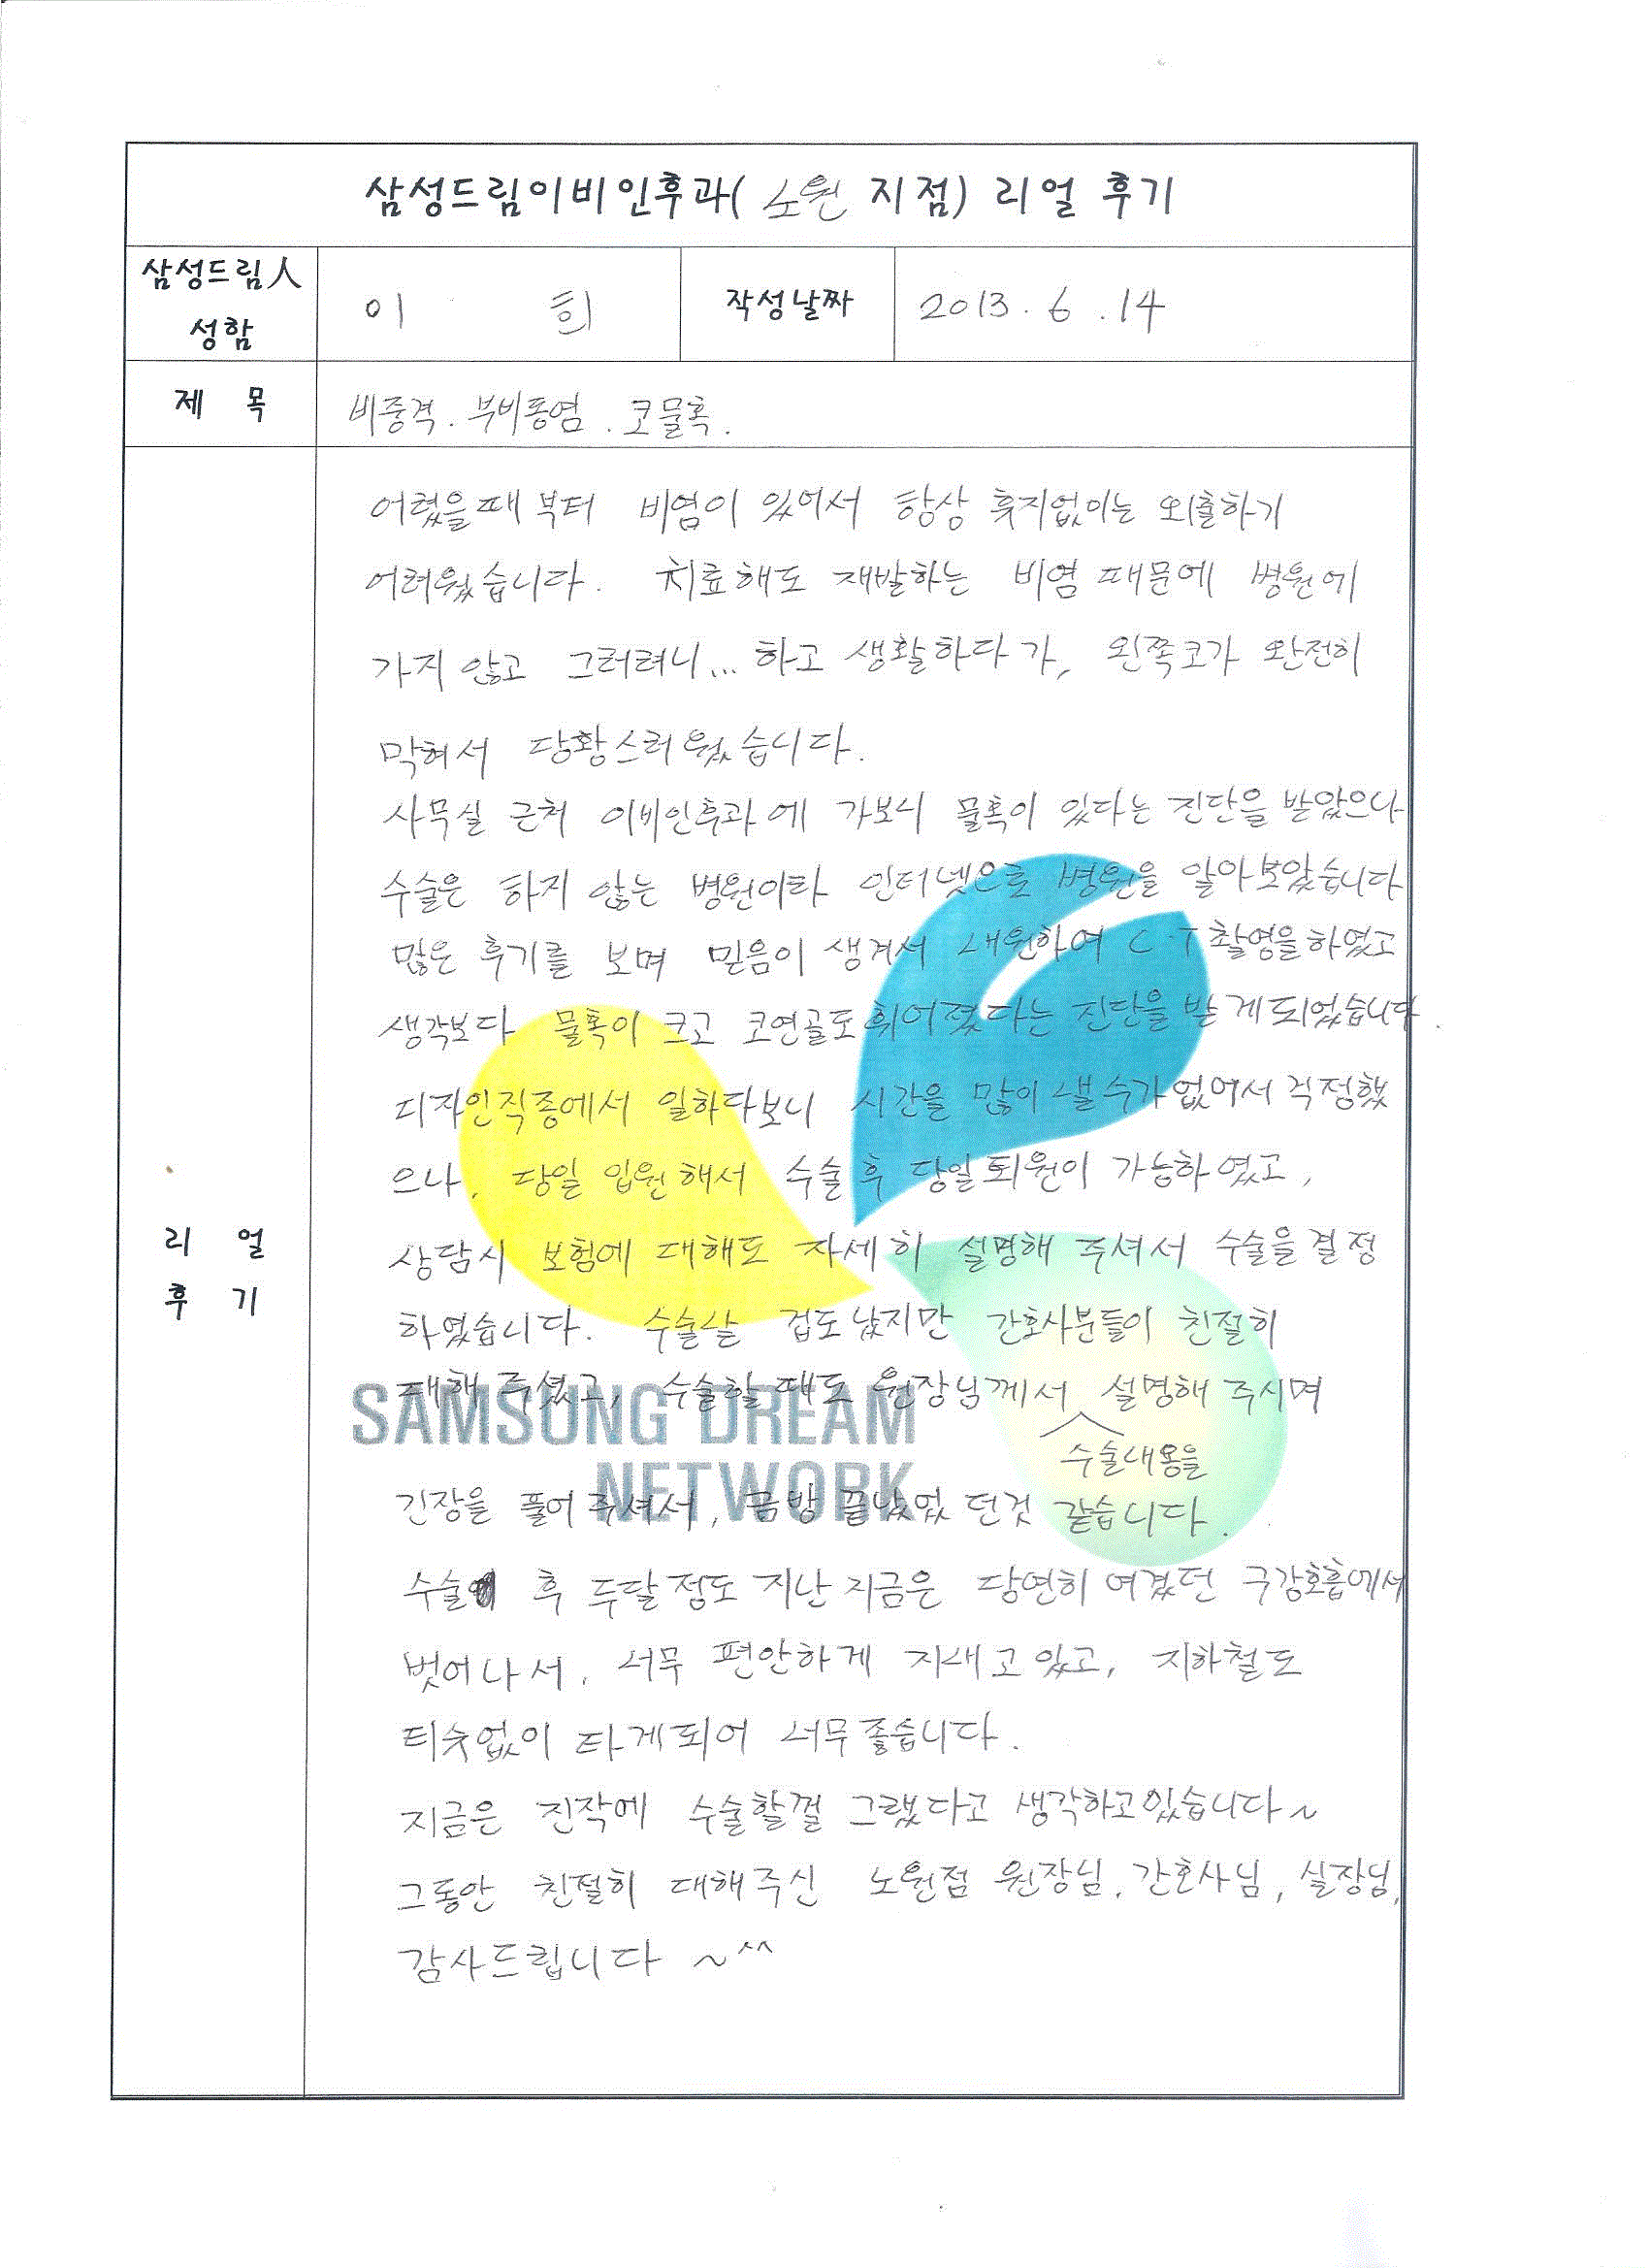 삼성드림이비인후과( 노원 지점) 리얼 후기
삼성드림人
성함
이 희
작성날짜
2013. 6. 14
제 목
비중격. 부비동염. 코물혹.
리 얼
후 기
어렸을때 부터 비염이 있어서 항상 휴지없이는 외출하기
어려웠습니다. 치료해도 재발하는 비염 때문에 병원에
가지 않고 그러려니... 하고 생활하다가, 왼쪽코가 완전히
막혀서 당황스러웠습니다.
사무실 근처 이비인후과에 가보니 물혹이 있다는 진단을 받았으나
수술은 하지 않는 병원이라 인터넷으로 병원을 알아보았습니다
많은 후기를 보며 믿음이 생겨서 내원하여 C.T 촬영을하였고
생각보다 물혹이 크고 코연골도 휘어졌다는 진단을 받게되었습니다.
디자인직종에서 일하다보니 시간을 많이 낼수가 없어서 걱정했
으나, 당일 입원해서 수술후 당일퇴원이 가능하였고,
상담시 보험에 대해도 자세히 설명해 주셔서 수술을결정
하였습니다. 수술날 겁도났지만 간호사분들이 친절히
대해 주셨고, 수술할때도 원장님께서 설명해 주시며
수술내용을
SAMSUNG DREAM
NETWORK
긴장을 풀어주셔서, 금방 끝났었던것 같습니다.
수술 후 두달정도 지난 지금은 당연히 여겼던 구강호흡에서
벗어나서, 너무 편안하게 지내고있고, 지하철도
티슈없이 타게되어 너무좋습니다.
지금은 진작에 수술할껄 그랬다고 생각하고있습니다~
그동안 친절히 대해주신 노원점 원장님, 간호사님, 실장님,
감사드립니다 ~^^